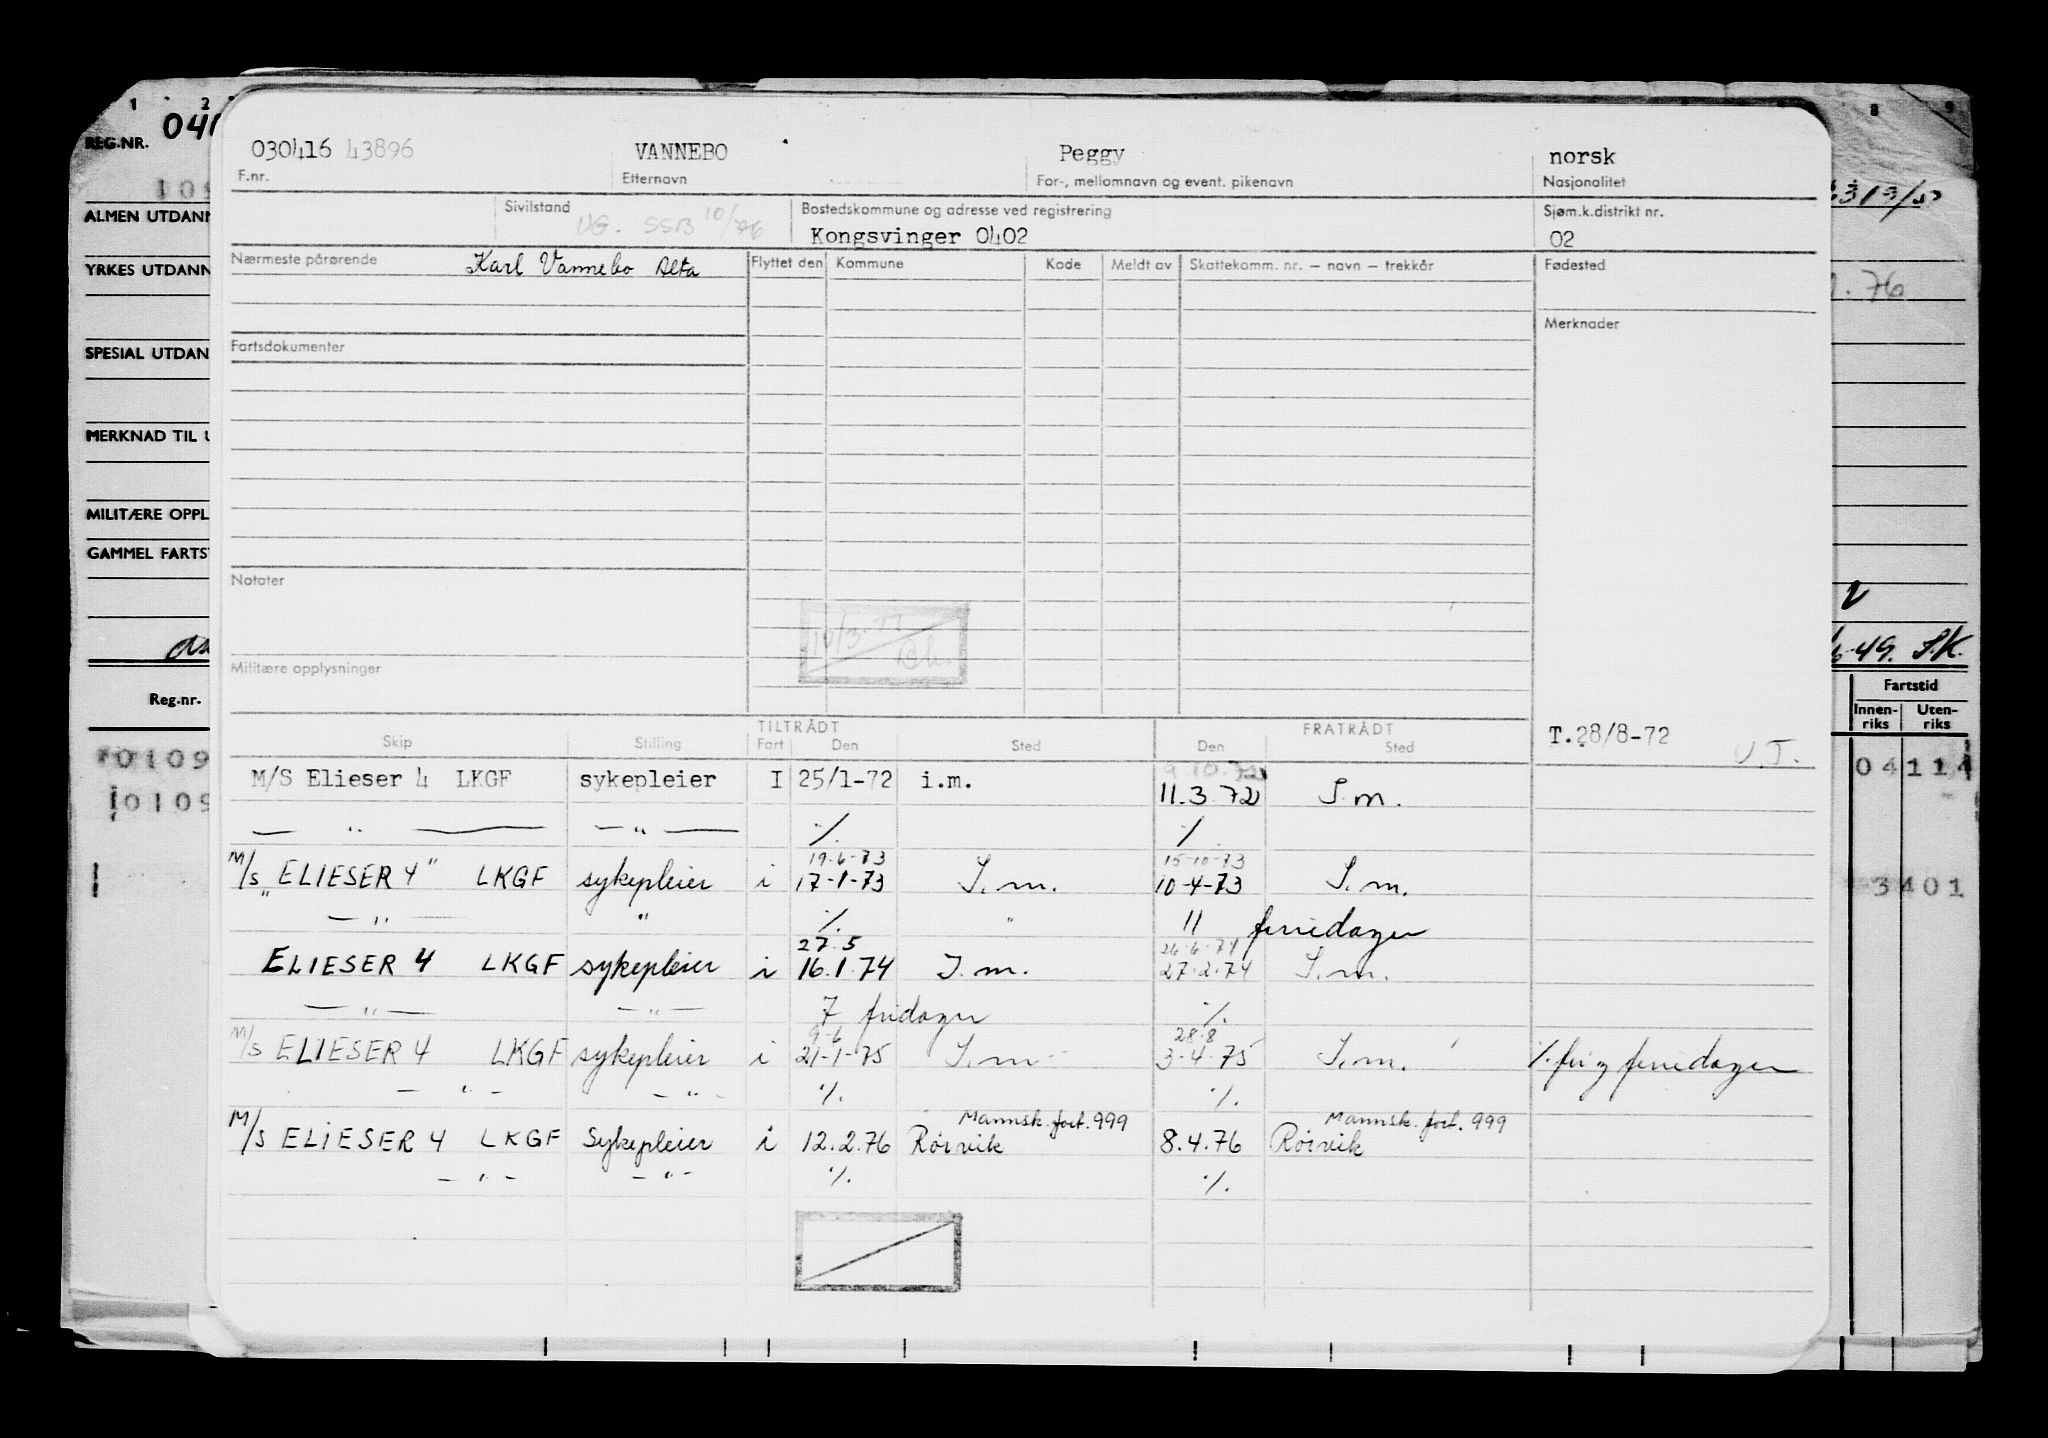 1 2
8 9
REG.NR. 040
030416 43896 VANNEBO Peggy norsk
F.nr. Etternavn For-, mellomnavn og event. pikenavn Nasjonalitet
109
ALMEN UTDANN
Sivilstand Bostedskommune og adresse ved registrering Sjøm.k.distrikt nr.
UG. SSB 10/76 Kongsvinger 0402 02
YRKES UTDANN
Nærmeste pårørende Karl Vannebo Alta Flyttet den Kommune Kode Meldt av Skattekomm. nr. — navn — trekkår Fødested
. 76
Merknader
Fartsdokumenter
SPESIAL UTDAN
MERKNAD TIL U
MILITÆRE OPPL
GAMMEL FARTS
Notater
10/3-77
Militære opplysninger
-49. S.K.
Reg.nr. Fartstid
Innen-riks Uten-riks
TILTRÅDT FRATRÅDT T.28/8-72 U.T.
Skip Stilling Fart Den Sted Den Sted
0109 04114
9.10.72
M/S Elieser 4 LKGF sykepleier I 25/1-72 i.m. 11.3.72 I.m.
0109
— " — — " — ·/. ·/.
19-6-73 15-10-73
M/s "ELIESER 4" LKGF sykepleier i 17-1-73 I.m. 10-4-73 I.m.
3401
— " — " ·/. " 11 feriedager
27.5 26.6.74
ELIESER 4 LKGF sykepleier i 16.1.74 I.m. 27.2.74 I.m.
— " — — " — 7 fridager ·/.
9-6 28.8
M/s ELIESER 4 LKGF sykepleier i 21-1-75 I.m. 3-4-75 I.m. ·/. fri og feriedager
— " — — " — ·/. ·/.
Mannsk. fort. 999 Mannsk. fort. 999
M/s ELIESER 4 LKGF Sykepleier i 12.2.76 Rørvik 8.4.76 Rørvik
— " — — " — ·/. ·/.